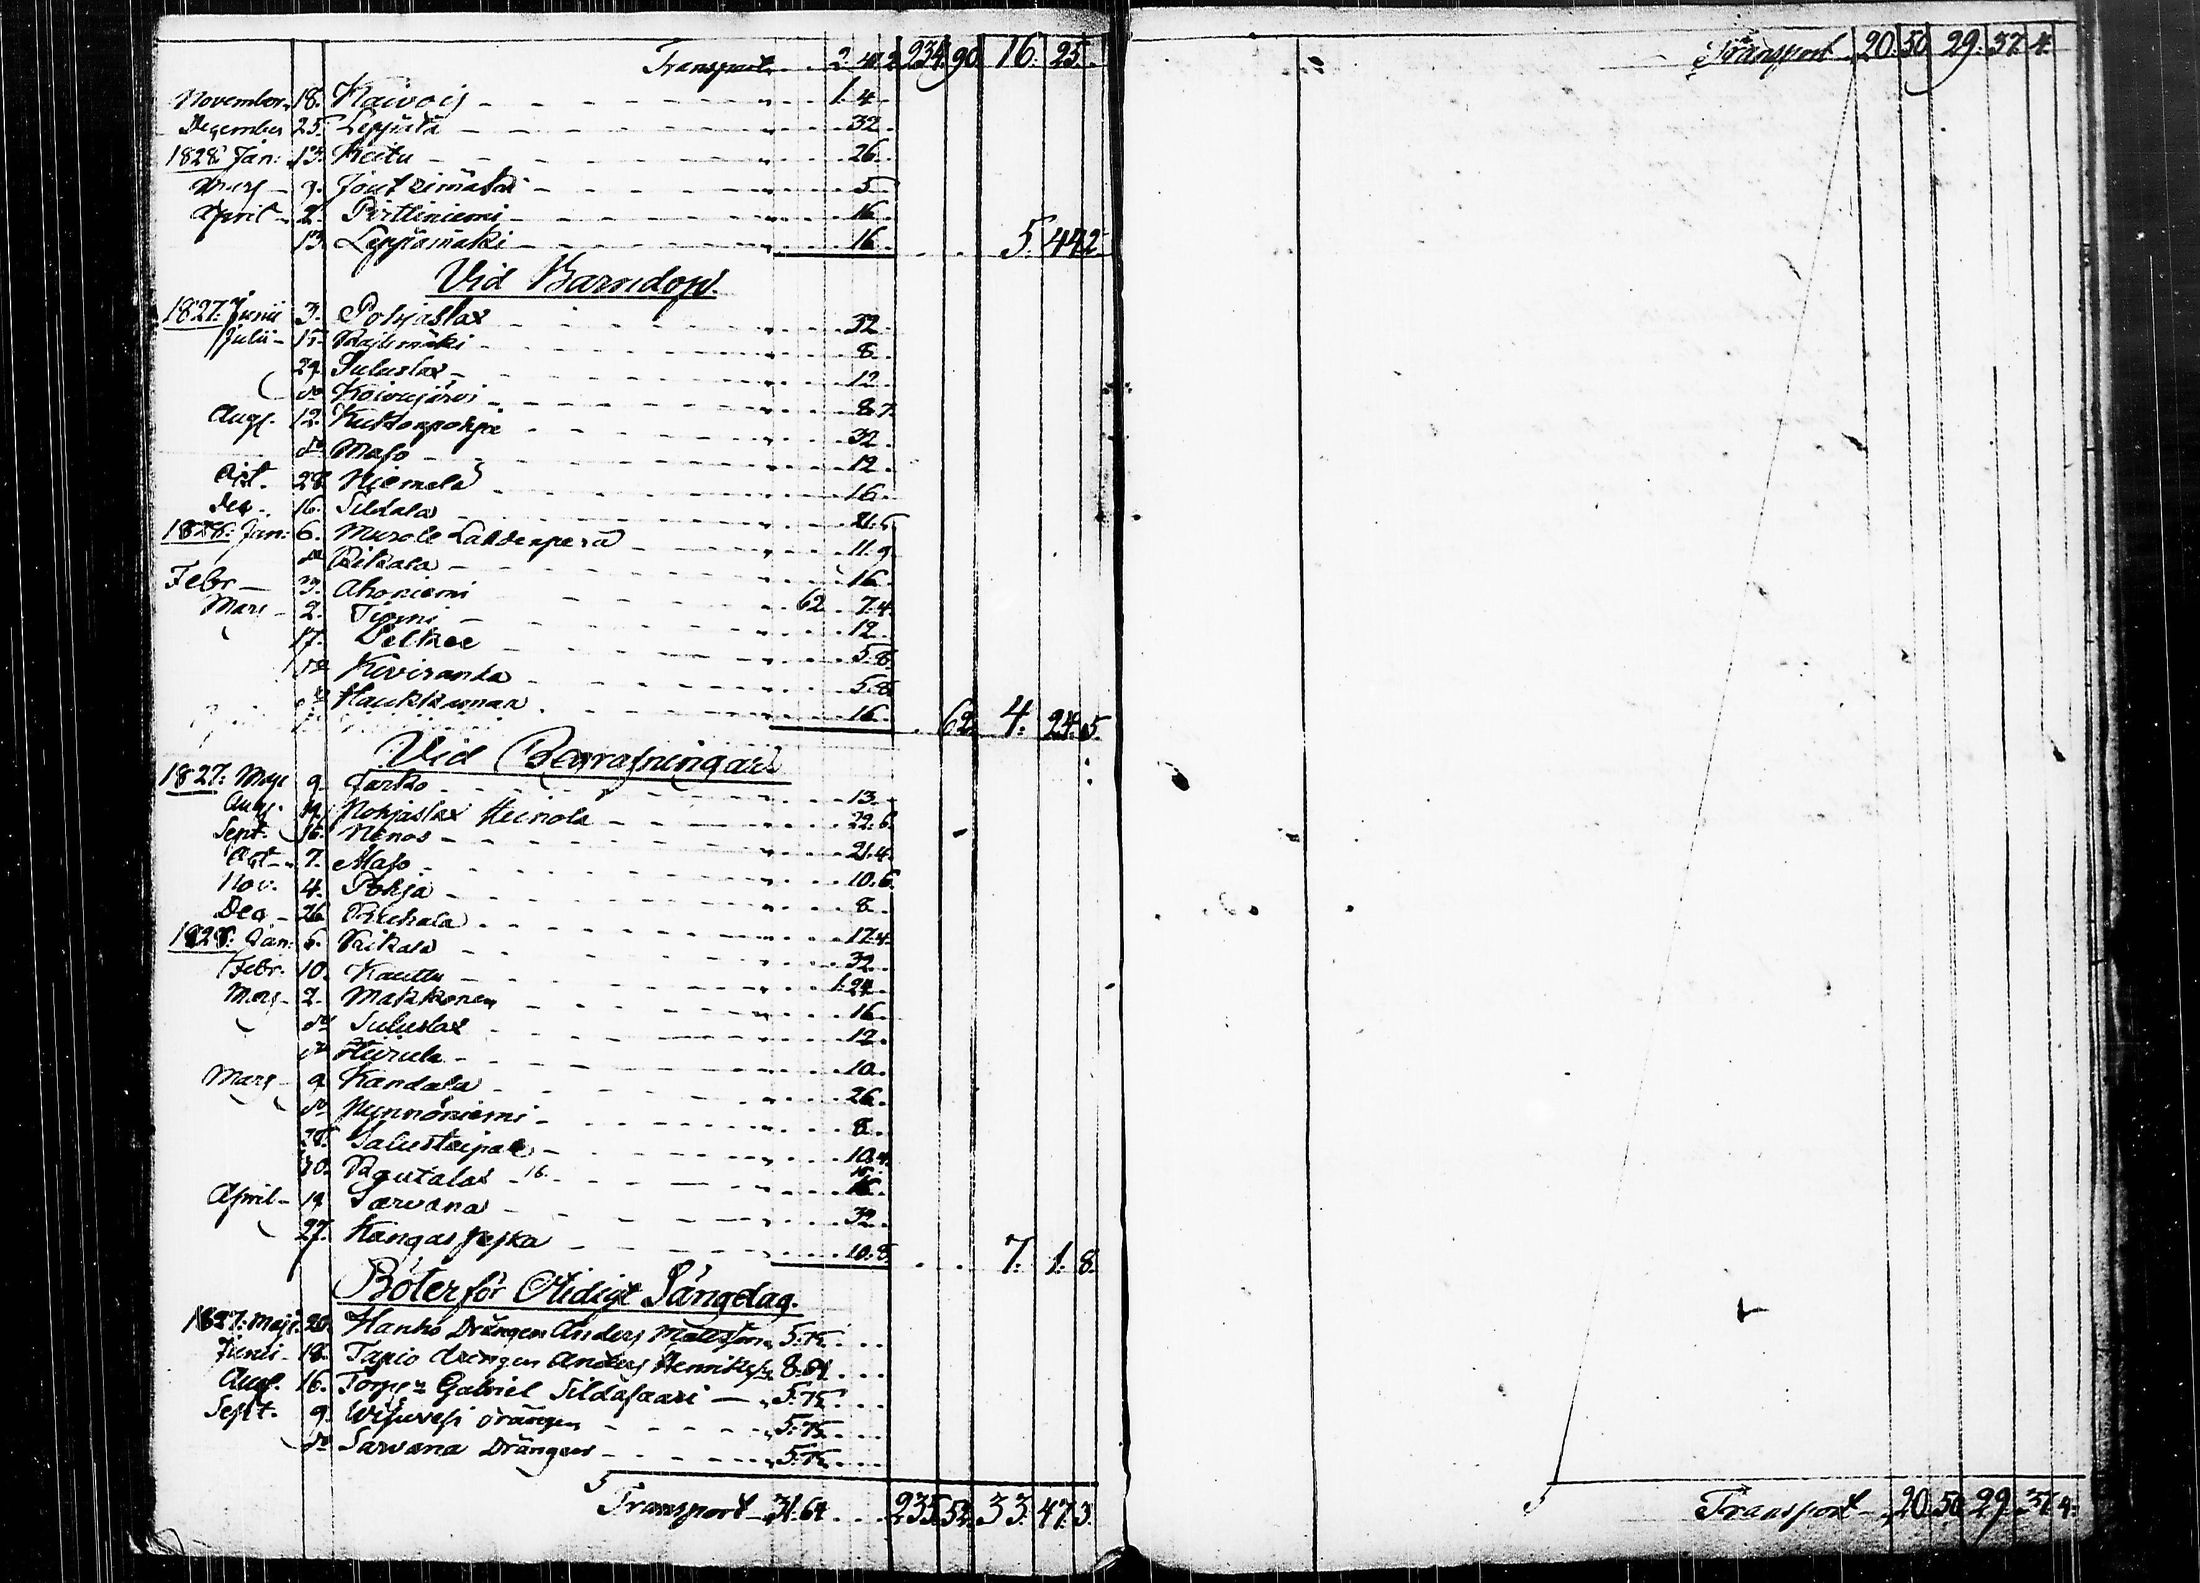 Transport 2. 40. 2 234. 90. 16. 25.
November 18. Kaivois 1. 4
December 25. Leppälä 32.
1828 Jan: 13. Keitu 26.
Mars 9. Joutzimäki 5
April 2. Pirttiniemi 16
13. Leppämäki 16 5. 44. 2.
Vid Barndop.
1827. Junii 3. Pohjaslax 32
Julii 15. Rajlimäki 8.
29. Suluslax 12
do Koivujärvi 8. 7.
Aug. 12. Kukonpohja 32
do Maso 12
Oct. 28 Niemelä 16.
Dec. 16. Sildala 21. 5
1828: Jan: 6. Murole Lahdenperä 11. 9
do Rikala 16
Febr 3. Ahoniemi 62 7. 4.
Mars 2. Tiomi 12
17. Pelkee 5. 8.
do Kiviranta 5. 8.
do Haukkaman 16 62. 4. 24. 5.
Vid Begrafningar.
1827: Maji 9. Jarko 13.
Aug. 19. Pohjaslax Heinola 22. 6.
Sept. 16. Nenos 21. 4.
Oct. 7. Maso 10. 6
Nov. 4. Pohja 8
Dec 26 Ruhala 17. 4.
1828: Jan: 6. Rikala 32
Febr. 10. Kauttu 1. 24.
Mars 2. Makkonen 16
do Suluslax 12
do Heinula 10.
Mars 9 Kandala 26.
do Pynnöniemi 8.
28. Salusteipale 10. 4.
30. Rautalax 16. 16
April 19 Sarvana 32
27. Kangas 10. 8. 7. 1. 8.
Böter för Otidigt Sängelag.
1827: Maji. 20. Hanho Drängen Anders Mattsson 5. 75.
Junii 18. Tapio drängen Anders Henriksson 8. 64
Aug. 16. Torp:n Gabriel Sildasaari 5. 75.
Sept. 9. Visuvesi drängen 5. 75.
do Sarvana Drängen 5. 75.
Transport 31. 64 235. 52. 33. 47. 3.
Transport 20. 50 29. 37. 4.
Transport 20. 50 29. 37. 4.